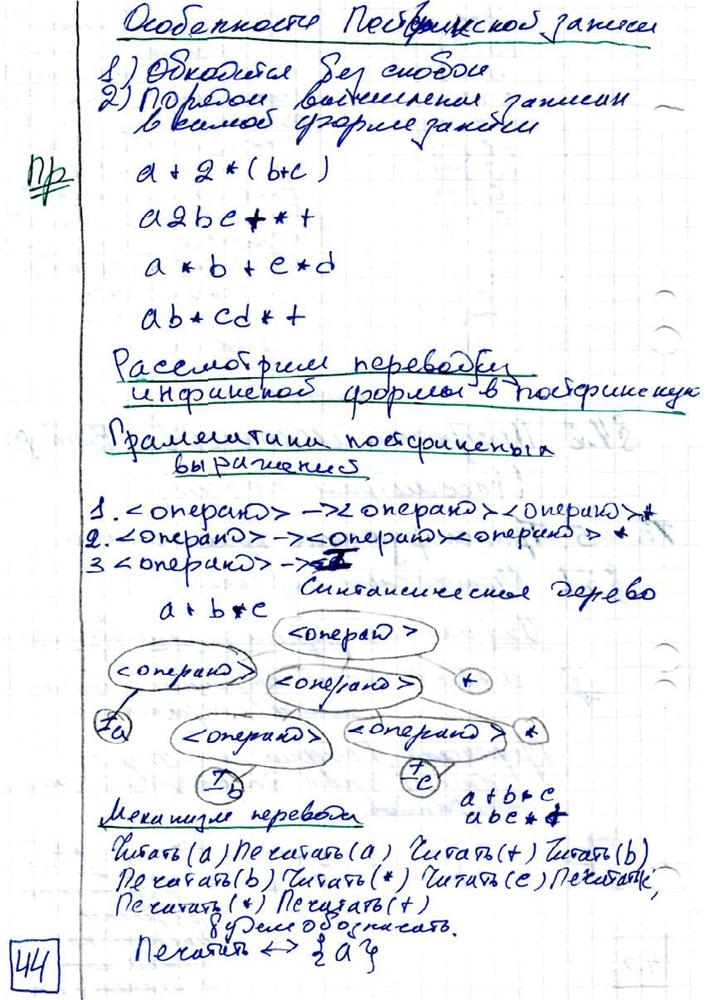 Особенности Постфиксной записи
1) Обходится без скобок
2) Порядок вычисления записан
в самой форме записи
Пр
a + 2 * (b+c)
a2bc+*+
a * b + c * d
ab*cd*+
Рассмотрим перевод
инфиксной формы в постфиксную
Грамматики постфиксных
выражений
1. <операнд> -> <операнд><операнд>+
2. <операнд> -> <операнд><операнд> *
3 <операнд> -> I
Синтаксическое дерево
a + b * c
<операнд>
<операнд> <операнд> +
I a <операнд> <операнд> *
I b I c
a + b * c
Механизм перевода abc*+
Читать(a) Печатать(a) Читать(+) Читать(b)
Печатать(b) Читать(*) Читать(c) Печатать(c)
Печатать(*) Печатать(+)
будем обозначать.
Печатать <-> {a}
44